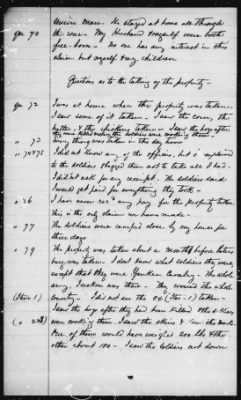 Union Man. He staged at home all through
qu 70 the war. My husband & myself were both
free-born - No one has any interest in this
claim but myself & my children
Questions as to the taking of the property -
qu 72 I was at home when the property was taken.
I saw some of it taken - I saw the corn, the
fodder, & the chickens taken - I saw the hogs after
they were killed & while the soldiers were working them
" 73 Every thing was taken in the day time
" 74 & 75 I did not know any of the officers, but I complained
to the soldiers & begged them not to take all I had -
I did not ask for any receipt. The soldiers said
I would get paid for everything they took -
" 76 I have never rec'd any pay for the property taken
This is the only claim we have made -
" 77 The soldiers were camped close by my house for
three days
" 79 The property was taken about a month before
was taken. I don't know what soldiers they were,
except that they were Yankee cavalry - The whole
army, I reckon was there - They covered the whole
(Item 1) country - I did not see the ox (Item 1) taken -
I saw the hogs after they had been killed & the soldiers
( " 2 & 3 ) were working them. I saw the skins & saw the meat.
One of them would have weighed 200 lbs & the
other about 100 - I saw the soldiers cut down